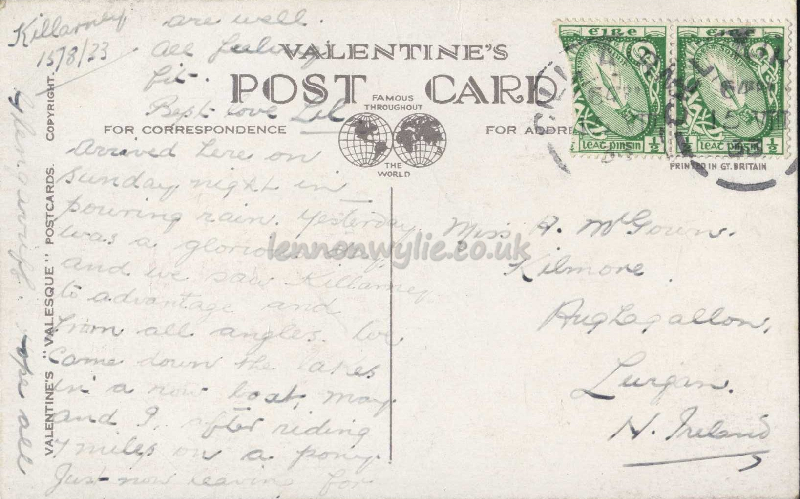 Killarney
15/8/33
Arrived here on
Sunday night in
pouring rain. Yesterday
was a glorious day
and we saw Killarney
to advantage and
from all angles. We
came down the lakes
in a row boat, May
and I, after riding
7 miles on a pony.
Just now leaving for
Hope all
are well.
All feeling
fit.
Best love Lil
VALENTINE'S
POST CARD
FAMOUS
THROUGHOUT
THE
WORLD
FOR CORRESPONDENCE
FOR ADDRE
VALENTINE'S "VALESQUE" POSTCARDS. COPYRIGHT.
éire
leat pinsin ½
éire
leat pinsin ½
PRINTED IN GT. BRITAIN
Miss A. McGown.
Kilmore.
Aughagallon,
Lurgan.
N. Ireland
lennonwylie.co.uk